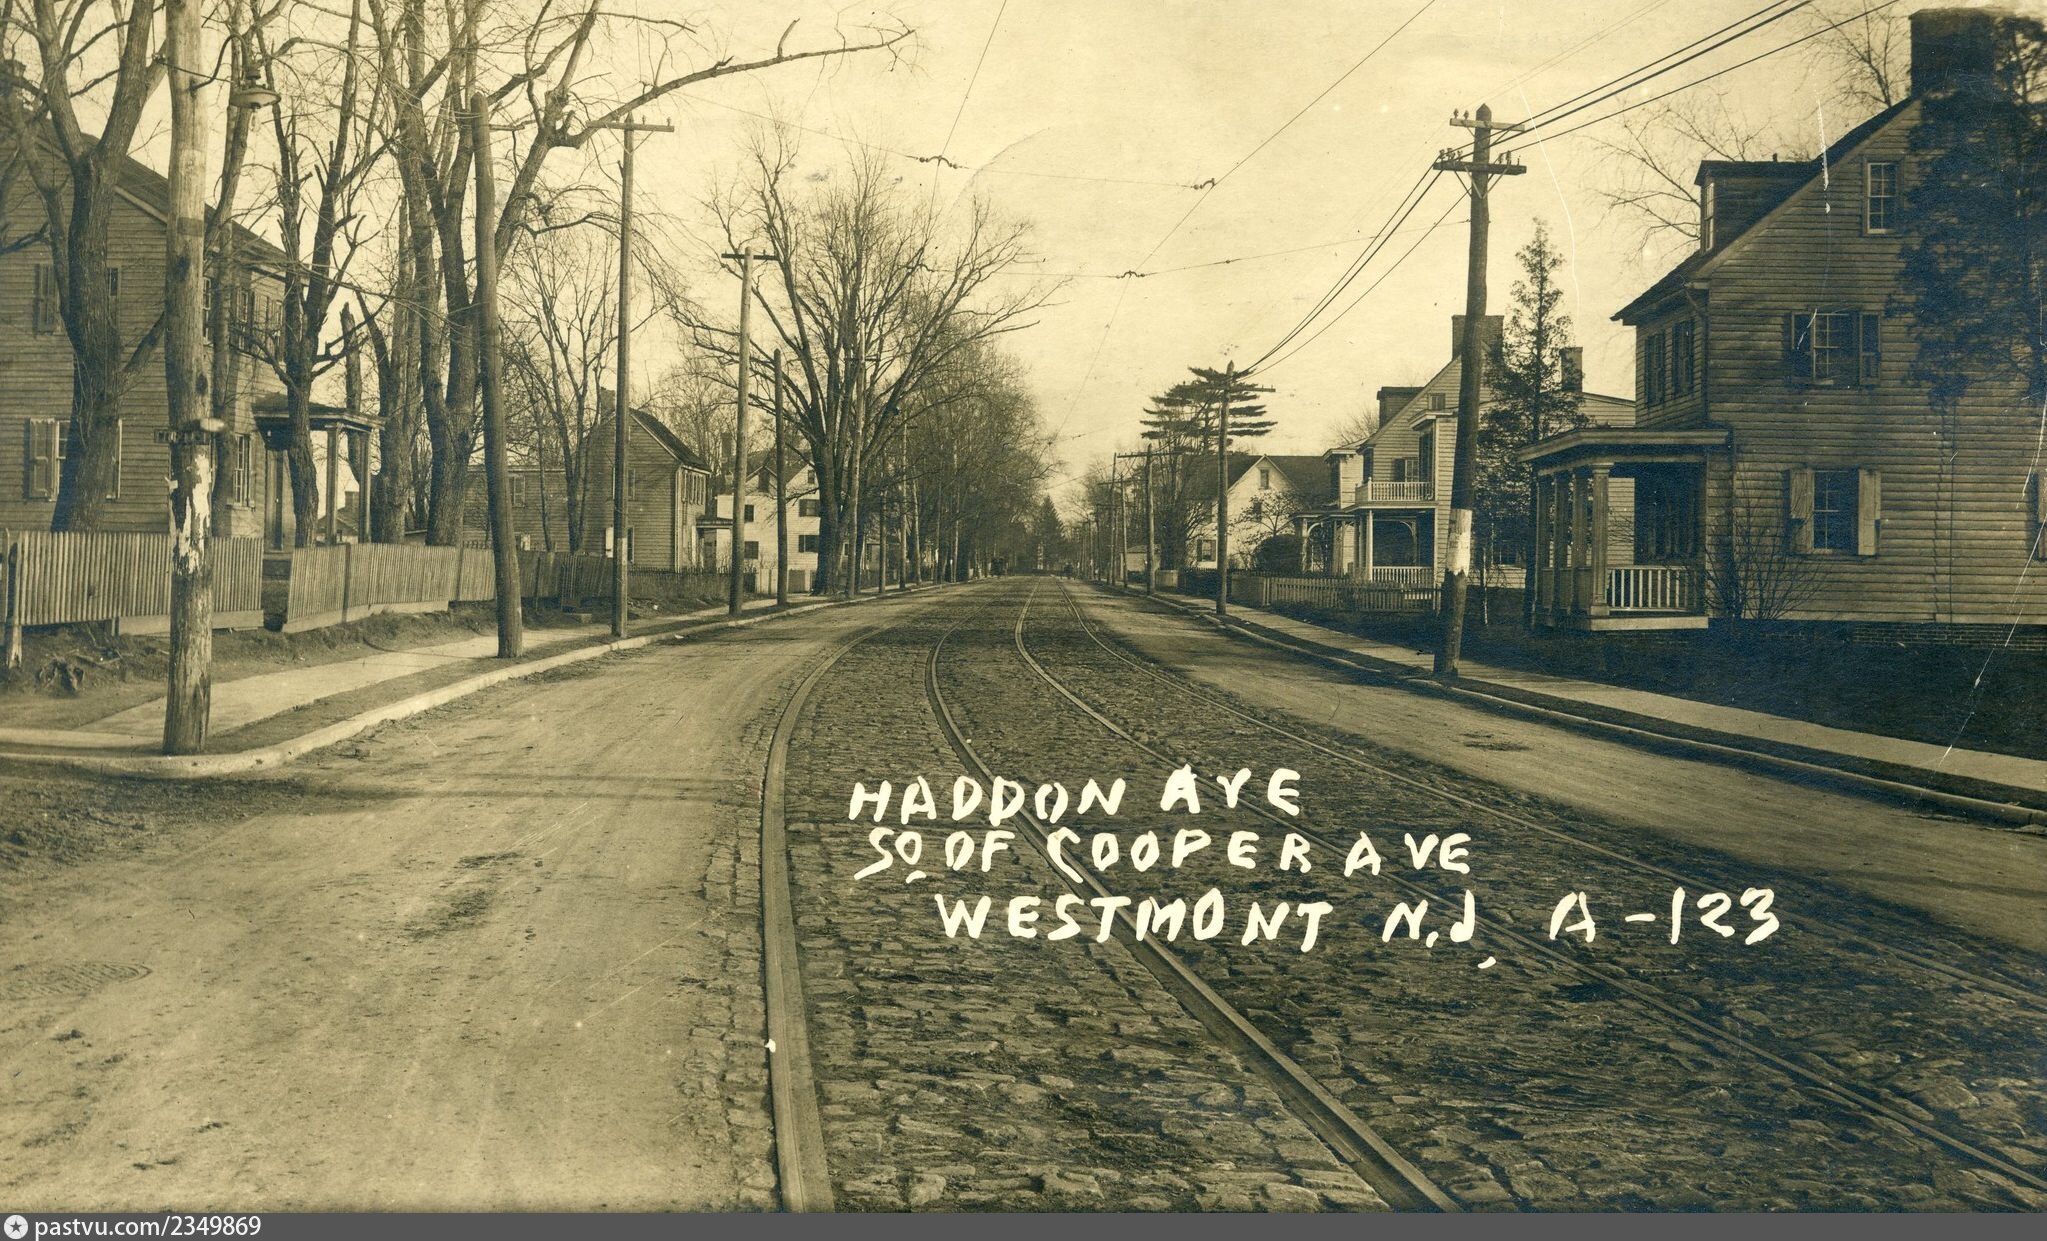 HADDON AVE
SO OF COOPER AVE
WESTMONT N.J. A-123
pastvu.com/2349869